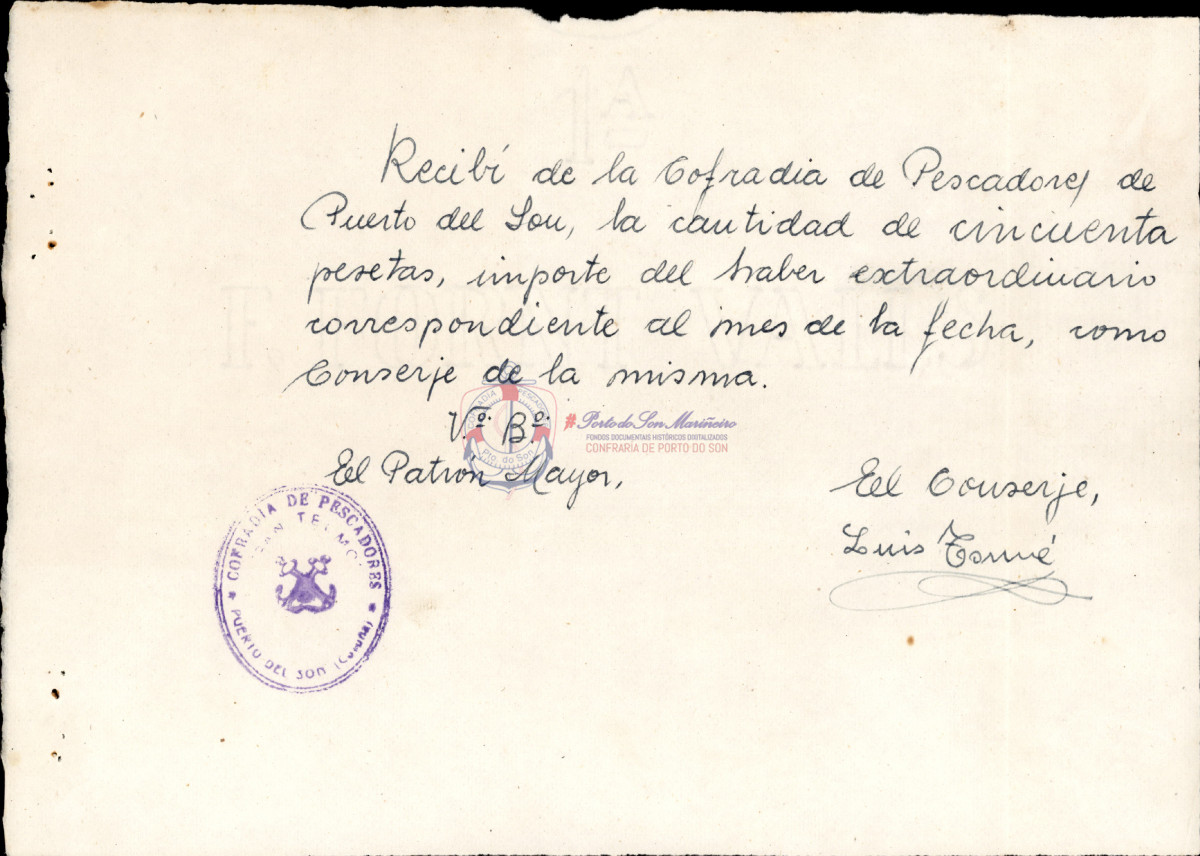 Recibí de la Cofradia de Pescadores de
Puerto del Son, la cantidad de cincuenta
pesetas, importe del haber extraordinario
correspondiente al mes de la fecha, como
Conserje de la misma.
Vº. Bº.
#Porto do Son Mariñeiro
FONDOS DOCUMENTAIS HISTÓRICOS DIXITALIZADOS
CONFRARÍA DE PORTO DO SON
COFRADIA PESCADORES
Pto. do Son
El Patrón Mayor,
El Conserje,
Luis Tomé
COFRADIA DE PESCADORES
SAN TELMO
PUERTO DEL SON (Coruña)